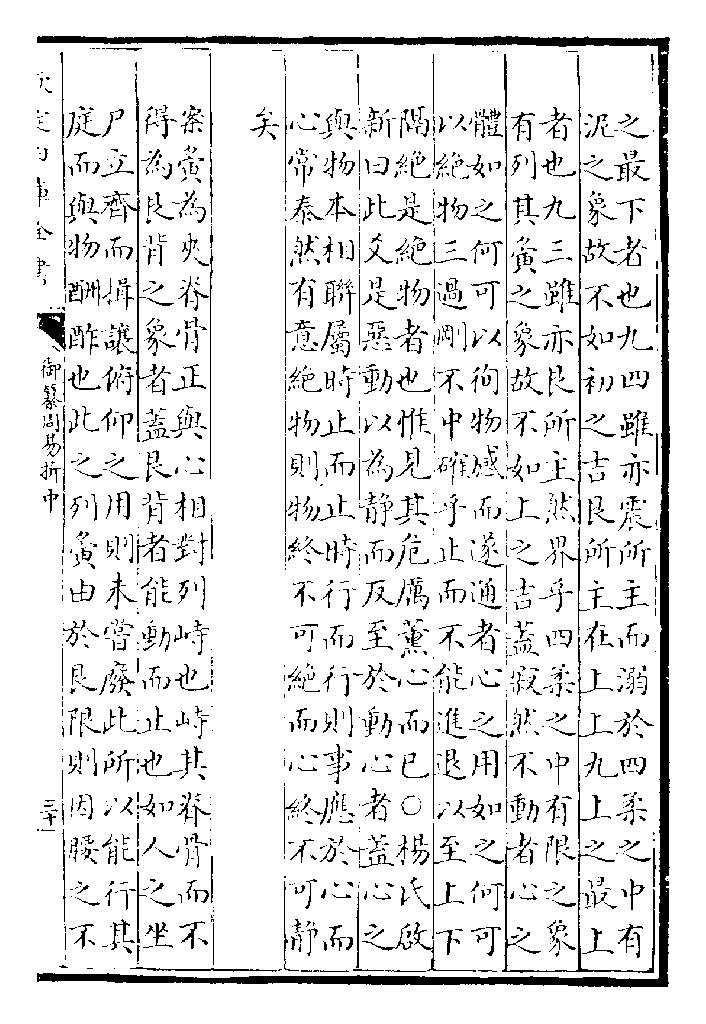 之最下者也九四雖亦震所主而溺於四柔之中有
泥之象故不如初之吉艮所主在上上九上之最上
者也九三雖亦艮所主然界乎四柔之中有限之象
有列其夤之象故不如上之吉蓋寂然不動者心之
體如之何可以徇物感而遂通者心之用如之何可
以絶物三過剛不中確乎止而不能進退以至上下
隔絶是絶物者也惟見其危厲薰心而已○楊氏啟
新曰此爻是惡動以為静而反至於動心者蓋心之
與物本相聯屬時止而止時行而行則事應於心而
心常泰然有意絶物則物終不可絶而心終不可静
矣
案夤為夾脊骨正與心相對列峙也峙其脊骨而不
得為艮背之象者蓋艮背者能動而止也如人之坐
尸立齊而揖讓俯仰之用則未嘗廢此所以能行其
庭而與物酬酢也此之列夤由於艮限則因腰之不
欽定四庫全書
御纂周易折中
三十一